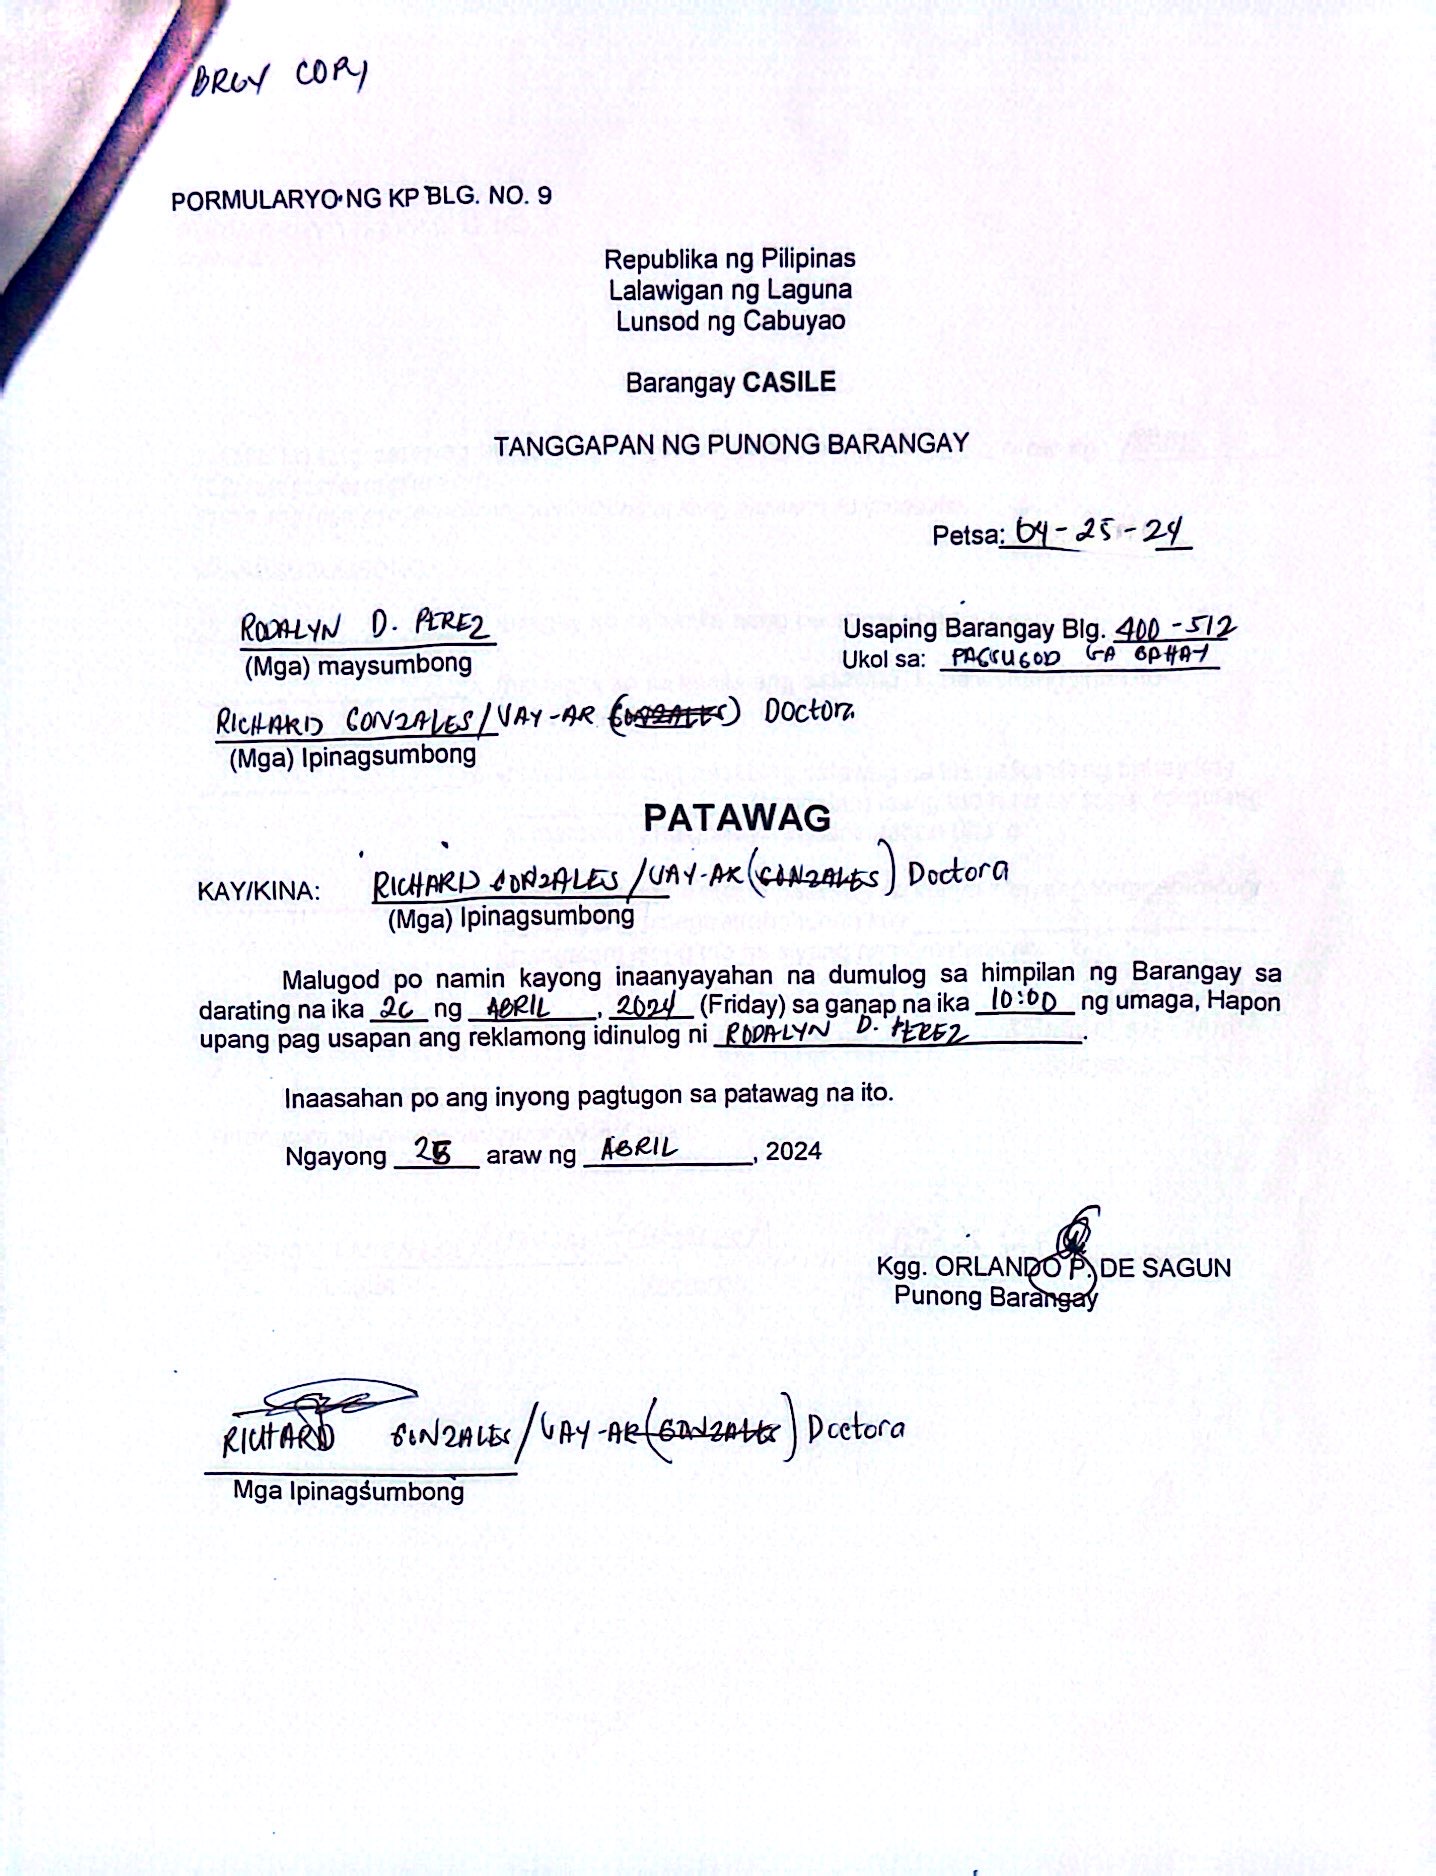 BRGY COPY
PORMULARYO NG KP BLG. NO. 9
Republika ng Pilipinas
Lalawigan ng Laguna
Lunsod ng Cabuyao
Barangay CASILE
TANGGAPAN NG PUNONG BARANGAY
Petsa: 04-25-24
RODALYN D. PEREZ
(Mga) maysumbong
Usaping Barangay Blg. 400-512
Ukol sa: PAGSUGOD SA BAHAY
RICHARD GONZALES/VAY-AR (GONZALES) Doctora
(Mga) Ipinagsumbong
PATAWAG
KAY/KINA: RICHARD GONZALES/VAY-AR (GONZALES) Doctora
(Mga) Ipinagsumbong
Malugod po namin kayong inaanyayahan na dumulog sa himpilan ng Barangay sa
darating na ika 26 ng ABRIL, 2024 (Friday) sa ganap na ika 10:00 ng umaga, Hapon
upang pag usapan ang reklamong idinulog ni RODALYN D. PEREZ.
Inaasahan po ang inyong pagtugon sa patawag na ito.
Ngayong 25 araw ng ABRIL, 2024
Kgg. ORLANDO P. DE SAGUN
Punong Barangay
RICHARD GONZALES/VAY-AR (GONZALES) Doctora
Mga Ipinagsumbong